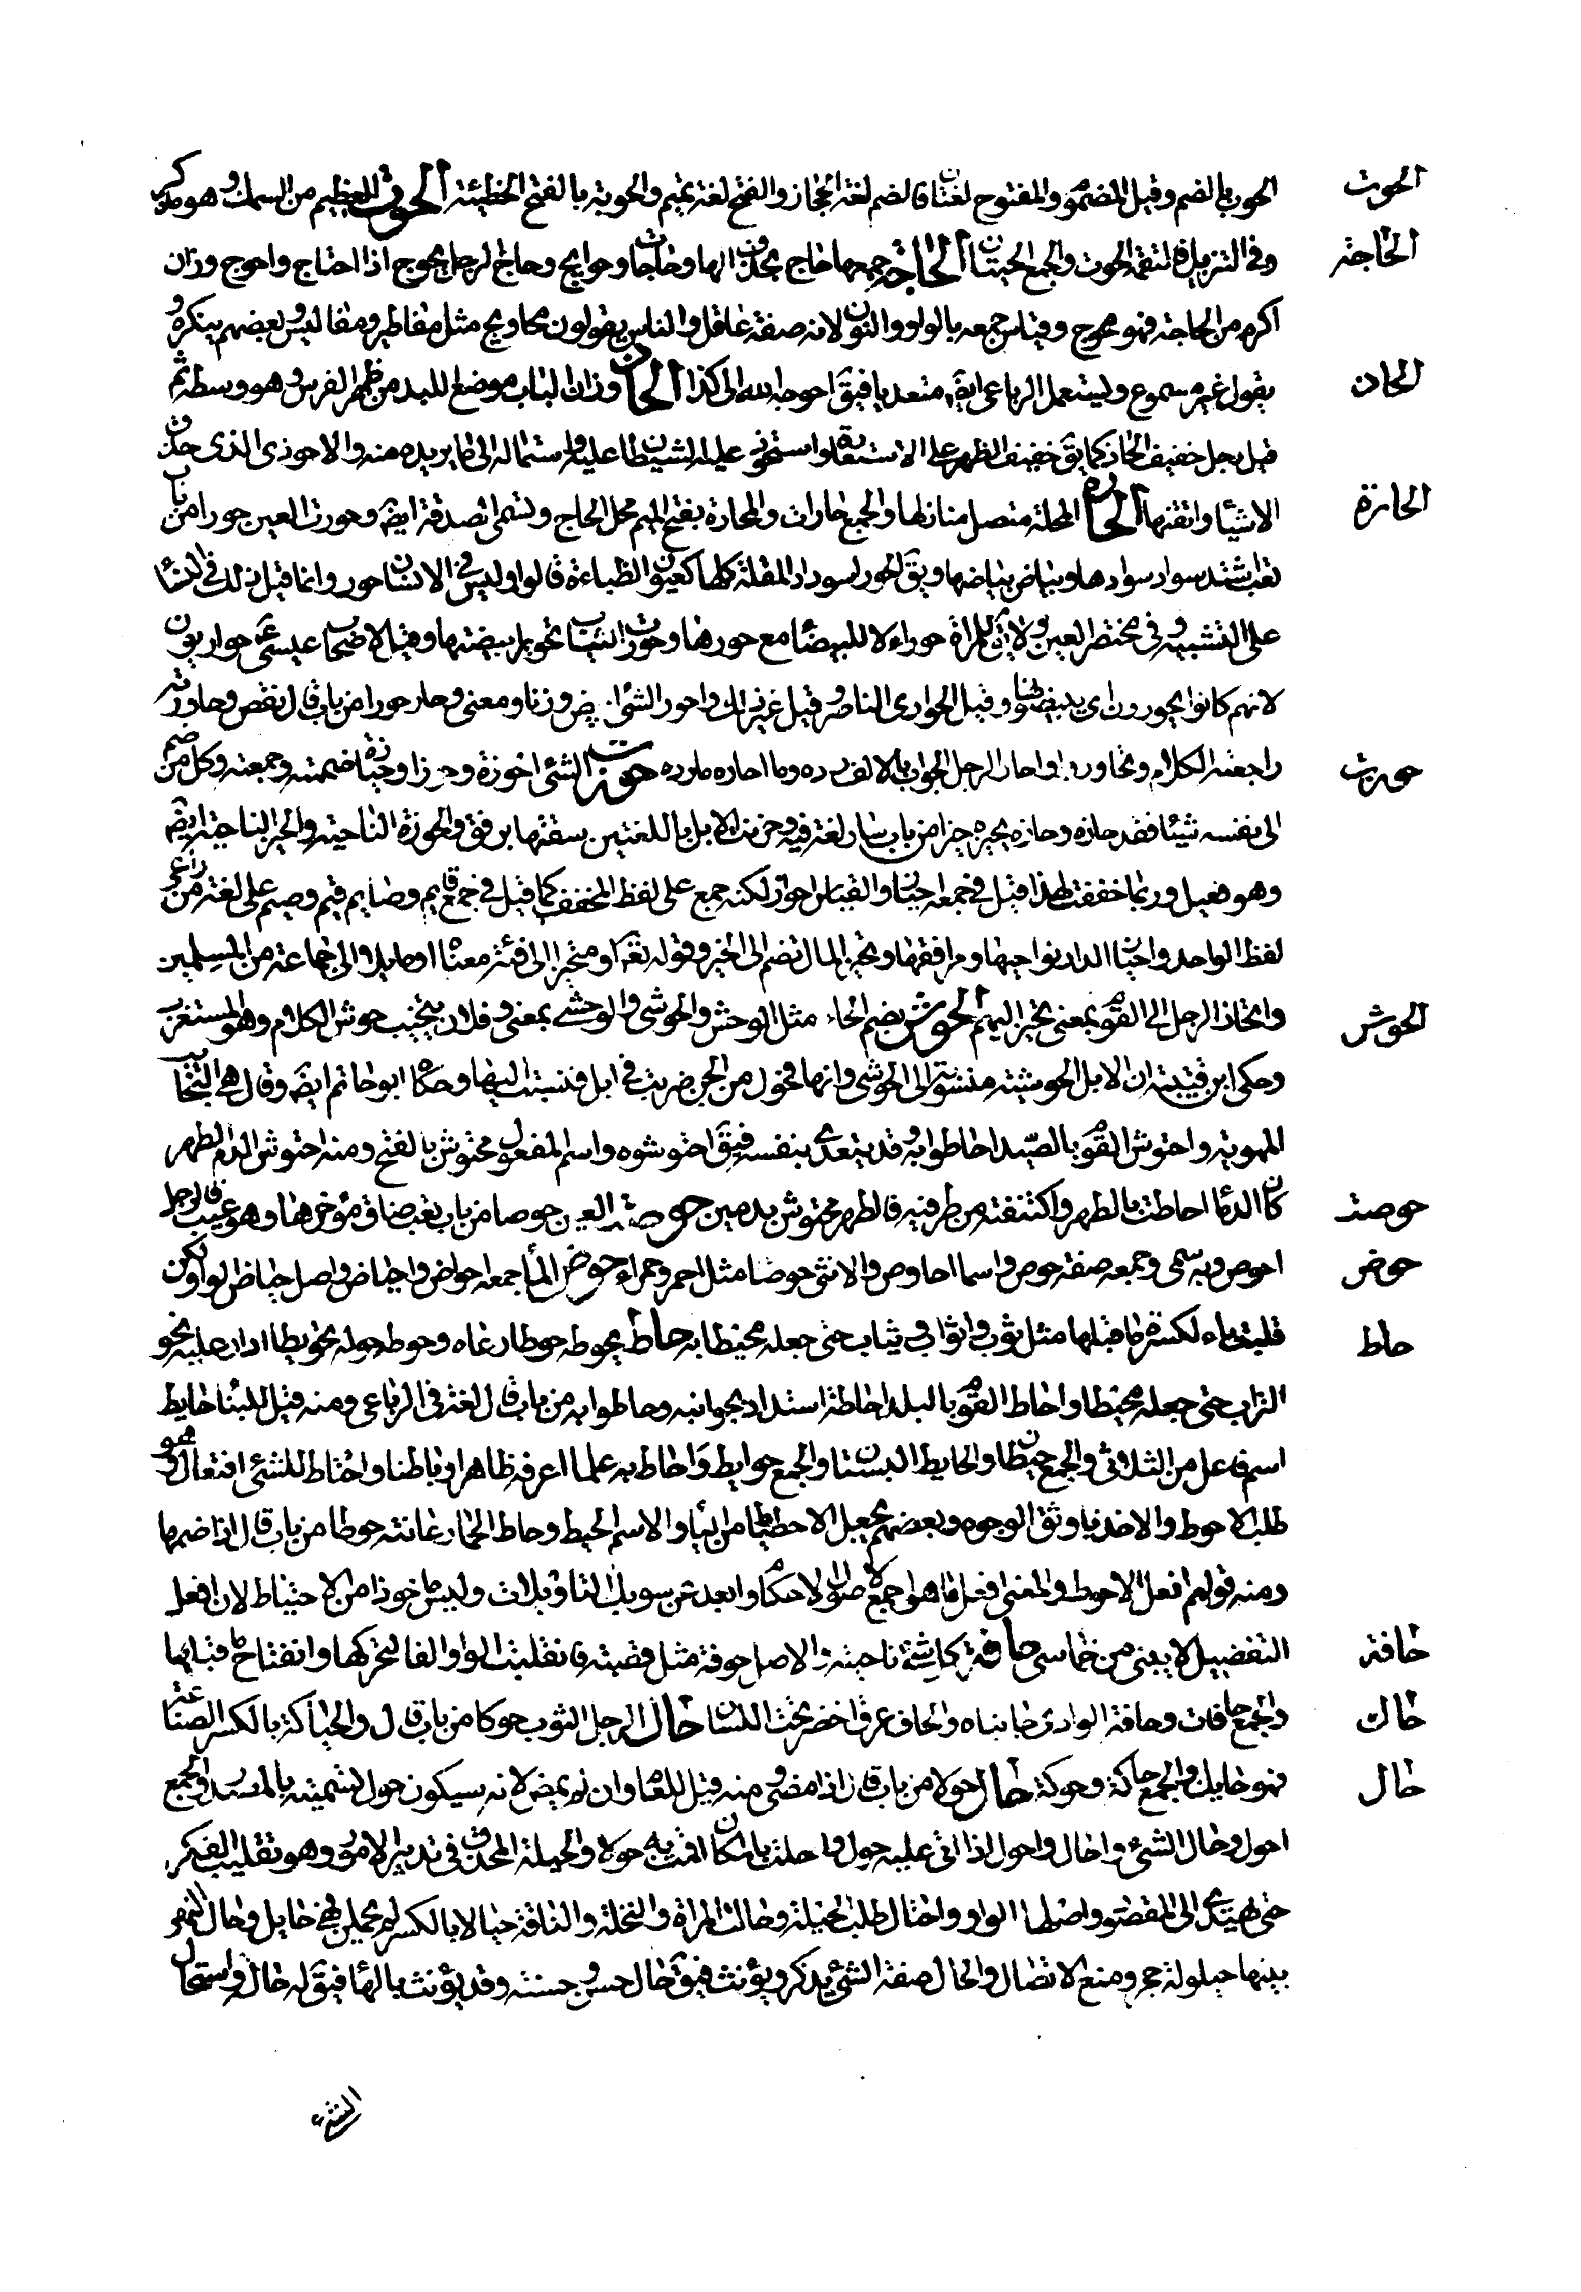 الحوت
الحوب بالضم وقيل المضموم والمفتوح لغتان فالضم لغة الحجاز والفتح لغة تميم والحوبة بالفتح الخطيئة الحوت العظيم من السمك وهو مذكر
الحاجة
وفي التنزيل فالتقمه الحوت والجمع الحيتان الحاجة جمعها حاج بحذف الهاء وحاجات وحوايج وحاج الرجل يحوج اذا احتاج واحوج وزان
اكرم من الحاجة فهو محوج وقياس جمعه بالواو والنون لانه صفة عاقل والناس يقولون محاويج مثل مفاطير ومفاليس وبعضهم ينكره و
الحاذ
يقول غير مسموع ويستعمل الرباعي ايضا متعديا فيق احوجه الله الى كذا الحاذ وزان الباب موضع اللبد من ظهر الفرس وهو وسطه ثم
قيل رجل خفيف الحاذ كما يق خفيف الظهر على الاستعارة واستحوذ عليه الشيطان غلبه واستماله الى ما يريده منه والاحوذي الذي حذق
الحارة
الاشيا واتقنها الحارة المحلة متصل منازلها والجمع حارات والمحارة بفتح الميم محمل الحاج وتسمى الصدفة ايضا وحورت العين حورا من باب
تعب اشتد سواد سوادها وبياض بياضها ويق الحور اسوداد المقلة كلها كعيون الظباء قالوا وليس في الانسان حور وانما قيل ذلك في النساء
على التشبيه وفي مختصر العين ولا يق للمراة حوراء الا للبيضاء مع حورها وحورت الثياب تحويرا بيضتها وقيل لاصحاب عيسى ع حواريون
لانهم كانوا يحورون اي يبيضون الثياب وقيل الحواري الناصر وقيل غير ذلك واحور الشئ ابيض وزنا ومعنى وحار حورا من باب قال نقص وحاورته
حوزت
راجعته الكلام وتحاوروا واحار الرجل الجواب بالالف رده وما احاره ما رده حوزت الشئ احوزه وحوزا وحيازة ضممته وجمعته وكل من ضم
الى نفسه شيئا فقد حازه وحازه يحيزه حيزا من باب سار لغة فيه وحزت الابل باللغتين سقتها برفق والحوزة الناحية والحيز الناحية ايضا
وهو فيعل وربما خففت ولهذا قيل في جمعه احياز والقياس احواز لكنه جمع على لفظ المخفف كما قيل في جمع قايم وصايم قيم وصيم على لغة من راعى
لفظ الواحد واحياز الدار نواحيها ومرافقها وتحيز المال انضم الى الحيز وقوله تع او متحيزا الى فئة معناه او مايلا الى جماعة من المسلمين
الحوش
وانحاز الرجل الى القوم بمعنى تحيز اليهم الحوش بضم الحاء مثل الوحش والحوشي والوحشي بمعنى وفلان يتجنب حوشي الكلام وهو المستغرب
وحكى ابن قتيبة ان الابل الحوشية منسوبة الى الحوشي وانها فحول من الجن ضربت في ابل فنسبت اليها وحكاه ابو حاتم ايضا وقال هي النجايب
المهرية واحتوش القوم بالصيد احاطوا به وقد يتعدى بنفسه فيق احتوشوه واسم المفعول محتوش بالفتح ومنه احتوش الدم الطهر
حوصت
كان الدماء احاطت بالطهر واكتنفته من طرفيه فالطهر محتوش بدمين حوصت العين حوصا من باب تعب ضاق مؤخرها وهو عيب فالرجل
حوض
احوص وبه سمى وجمعه صفة حوص واسما احاوص والانثى حوصا مثل احمر وحمراء حوض الماء جمعه احواض وحياض واصل حياض الواو لكن
حاط
قلبت ياء لكسرة ما قبلها مثل ثوب واثواب وثياب حتى جعله محيطا به حاط يحوطه حوطا رعاه وحوط حوله تحويطا ادار عليه نحو
التراب حتى جعله محيطا واحاط القوم بالبلد احاطة استداروا بجوانبه وحاطوا به من باب قال لغة في الرباعي ومنه قيل للبناء حايط
اسم فاعل من الثلاثي والجمع حيطان والحايط البستان والجمع حوايط واحاط به علما اعرفه ظاهرا وباطنا واحتاط للشئ افتعال وهو
طلب الاحوط والاخذ باوثق الوجوه وبعضهم يجعل الاحتياط من الياء والاسم الحيط وحاط الحمار عانته حوطا من باب قال اذا ضمها
ومنه قولهم افعل الاحوط والمعنى افعل ما هو اجمع لاصول الاحكام وابعد عن سوب التاويلات وليس ماخوذا من الاحتياط لان افعل
حافة
التفضيل لا يبنى من خماسي حافة كل شئ ناحيته والاصل حوفة مثل قصبة فانقلبت الواو الفا لتحركها وانفتاح ما قبلها
حاك
والجمع حافات وحافتا الوادي جانباه والحاف عرق اخضر تحت اللسان حاك الرجل الثوب حوكا من باب قال والحياكة بالكسر الصناعة
حال
فهو حايك والجمع حاكة وحوكة حال حولا من باب قال اذا مضى ومنه قيل للعام وان لم يمض لانه سيكون حول تسمية بالمصدر والجمع
احول وحال الشئ واحال واحول اذا اتى عليه حول واحلت بالمكان اقمت به حولا والحيلة الحذق في تدبير الامور وهو تقليب الفكر
حتى يهتدي الى المقصود واصلها الواو واحتال طلب الحيلة وحالت المراة والنخلة والناقة حيالا بالكسر لم يحمل فهي حايل وحال النهر
بينها حيلولة حجز ومنع الاتصال والحال صفة الشئ يذكر ويؤنث فيق حال حسن وحسنة وقد يؤنث بالهاء فيق له حالة واستحال
الشئ